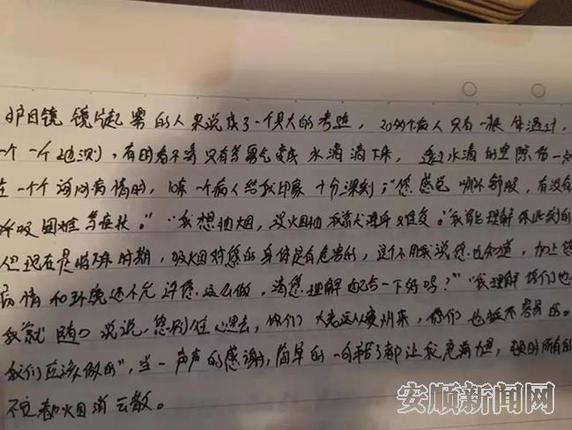 护目镜镜片起雾的人来说成了一个很大的考验，20多个病人只有一根体温计，
一个一个地测，有时看不清只有等雾气变成水滴滴下来，透过水滴的空隙
在一个个询问病情时，10床一个病人给我印象十分深刻；“您感觉哪里舒服，有没有
呼吸困难等症状。”“我想抽烟，没火抽我觉得难受。”我能理解
但现在是特殊时期，吸烟对您的身体是有危害的，这个不用我说您也知道，加上您
病情和环境还不允许您这么做，请您理解配合一下好吗？”“我理解你们也
我就随口说说，您别往心里去，你们大老远从贵州来，你们也挺不容易的。
我们应该做的”，当一声声的感谢，简单的一句辛苦了都让我充满力量，
不适都烟消云散。
安顺新闻网